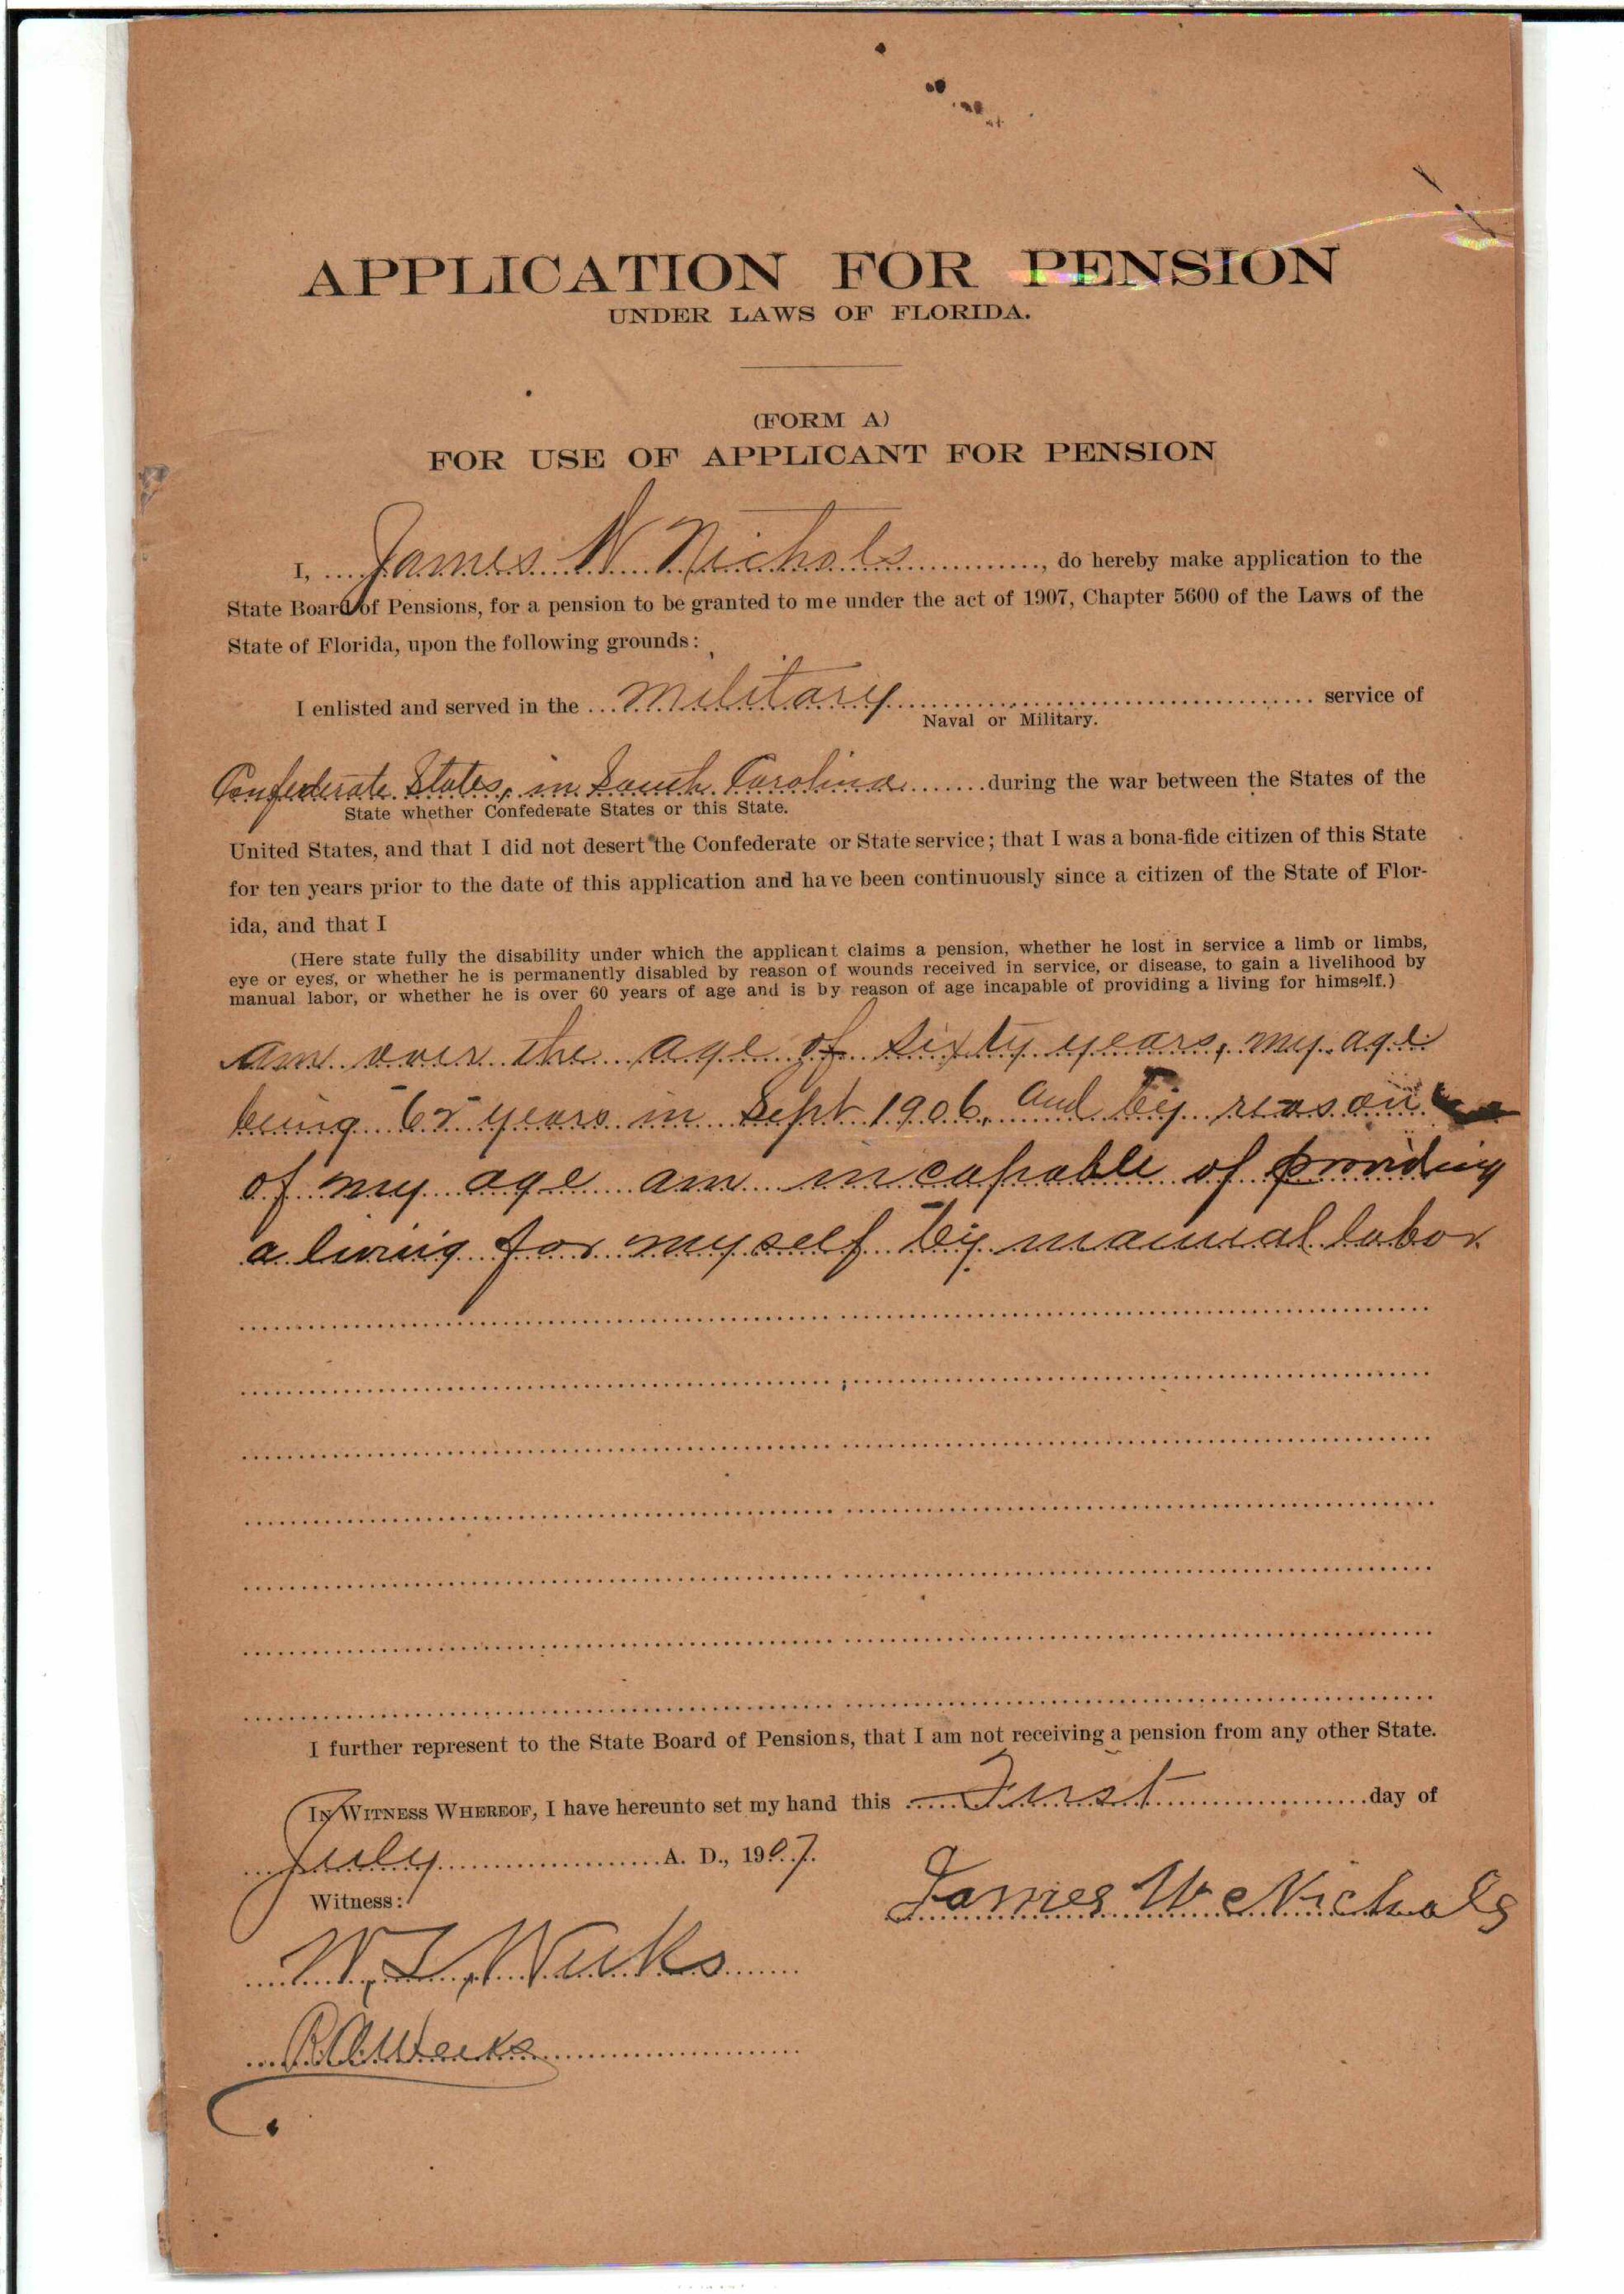 APPLICATION FOR PENSION
UNDER LAWS OF FLORIDA.
(FORM A)
FOR USE OF APPLICANT FOR PENSION
I, James W Nichols, do hereby make application to the
State Board of Pensions, for a pension to be granted to me under the act of 1907, Chapter 5600 of the Laws of the
State of Florida, upon the following grounds:
I enlisted and served in the military service of
Naval or Military.
Confederate States, in South Carolina during the war between the States of the
State whether Confederate States or this State.
United States, and that I did not desert the Confederate or State service; that I was a bona-fide citizen of this State
for ten years prior to the date of this application and have been continuously since a citizen of the State of Flor-
ida, and that I
(Here state fully the disability under which the applicant claims a pension, whether he lost in service a limb or limbs,
eye or eyes, or whether he is permanently disabled by reason of wounds received in service, or disease, to gain a livelihood by
manual labor, or whether he is over 60 years of age and is by reason of age incapable of providing a living for himself.)
am over the age of sixty years, my age
being years in Sept 1906, and by reason
of my age am incapable of providing
a living for myself by manual labor
I further represent to the State Board of Pensions, that I am not receiving a pension from any other State.
IN WITNESS WHEREOF, I have hereunto set my hand this First day of
July A. D., 1907.
Witness:
James W Nichols
W. L. Weeks
R A Weeks